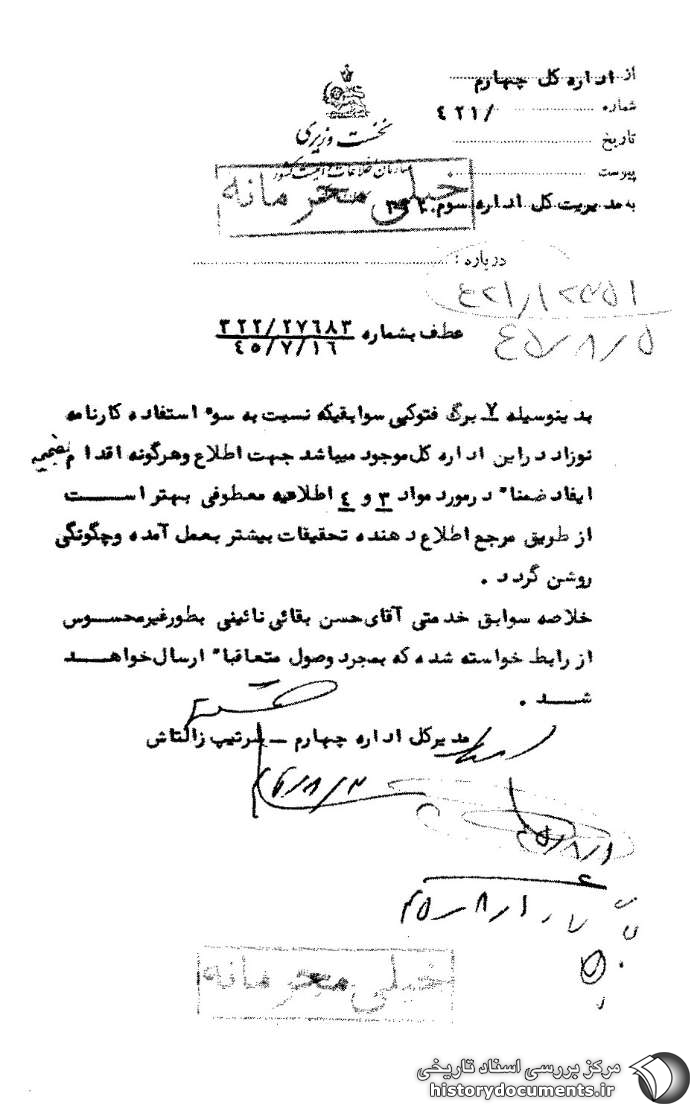 از اداره کل چهارم
شماره /۴۲۱
تاریخ
پیوست
نخست وزیری
سازمان اطلاعات و امنیت کشور
خیلی محرمانه
به مدیریت کل اداره سوم
درباره :
۴۲۱/۱۲۳۵۱
۴۵/۸/۵
عطف بشماره ۳۲۲/۲۷۶۸۳
۴۵/۷/۱۶
بدینوسیله ۷ برگ فتوکپی سوابقیکه نسبت به سوء استفاده کارنامه
نوزاد دراین اداره کل موجود میباشد جهت اطلاع وهرگونه اقدام
ایفاد ضمنا" درمورد مواد ۳ و ۴ اطلاعیه معطوفی بهتر اســـت
از طریق مرجع اطلاع دهنده تحقیقات بیشتر بعمل آمده وچگونگی
روشن گردد .
خلاصه سوابق خدمتی آقای حسن بقائی نائینی بطور غیر محســـوس
از رابط خواسته شده که بمجرد وصول متعاقبا" ارسال خواهـــد
شـــد .
مدیرکل اداره چهارم ــ سرتیپ زالتاش
۴۵/۸/۱
۴۵/۸/۱
خیلی محرمانه
مرکز بررسی اسناد تاریخی
historydocuments.ir